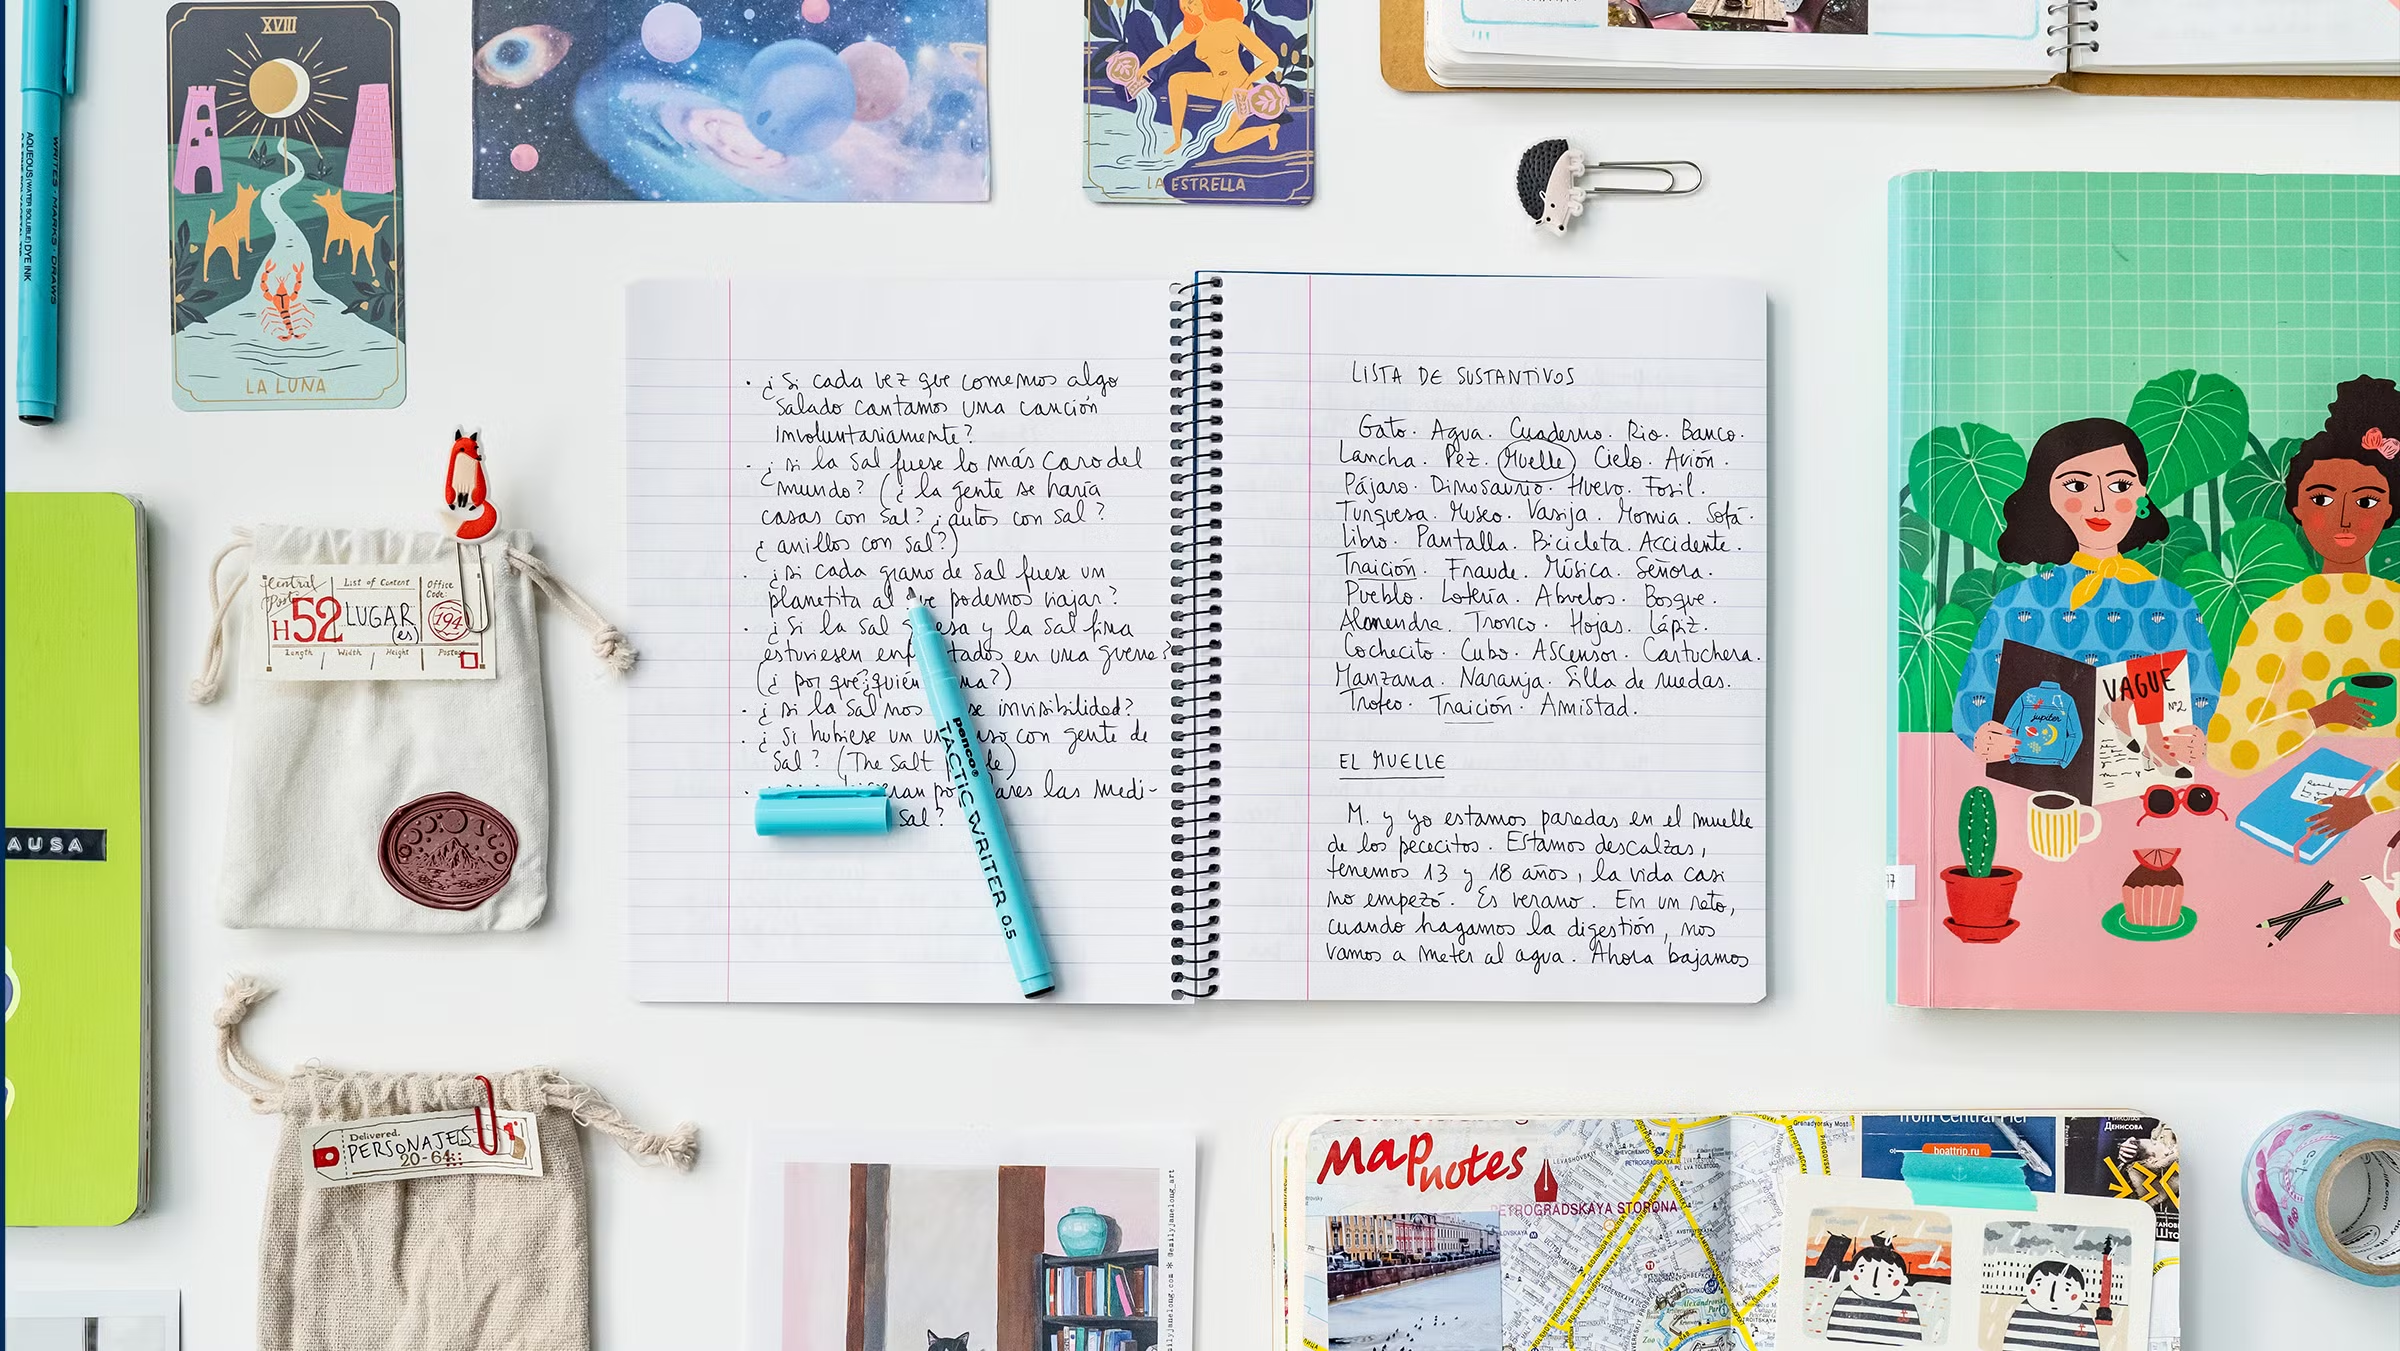 XVIII
LA LUNA
WRITES · MARKS · DRAWS
AQUEOUS (WATER SOLUBLE) DYE INK
LA ESTRELLA
Central
List of Content
Office
Code:
H52 LUGAR
(es)
194
Length Width Height Postage
AUSA
Delivered.
PERSONAJES
20-64
· ¿Si cada vez que comemos algo
salado cantamos una canción
involuntariamente?
· ¿si la sal fuese lo más caro del
mundo? (¿la gente se haría
casas con sal? ¿autos con sal?
¿anillos con sal?)
· ¿si cada grano de sal fuese un
planetita al que podemos viajar?
· ¿Si la sal y la sal fina
estuviesen en una guerra?
(¿por qué? ¿quién
· ¿si la sal nos invisibilidad?
· ¿Si hubiese un con gente de
sal? (The Salt
las medi-
sal?
penco®
TACTIC WRITER 0.5
LISTA DE SUSTANTIVOS
Gato. Agua. Cuaderno. Rio. Banco.
Lancha. Pez. Muelle. Cielo. Avión.
Pájaro. Dinosaurio. Huevo. Fosil.
Turquesa. Museo. Vasija. Momia. Sofá.
Libro. Pantalla. Bicicleta. Accidente.
Traición. Fraude. Música. Señora.
Pueblo. Lotería. Abuelos. Bosque.
Almendra. Tronco. Hojas. Lápiz.
Cochecito. Cubo. Ascensor. Cartuchera.
Manzana. Naranja. Silla de ruedas.
Trofeo. Traición. Amistad.
EL MUELLE
M. y yo estamos paradas en el muelle
de los pececitos. Estamos descalzas,
tenemos 13 y 18 años, la vida casi
no empezó. Es verano. En un rato,
cuando hagamos la digestión, nos
vamos a meter al agua. Ahora bajamos
jupiter
VAGUE
Nº2
Map
notes
PETROGRADSKAYA STORONA
from Central Pier
boattrip.ru
Денисова
Grenadyorsky Most
emilyjanelong.com * @emilyjanelong_art